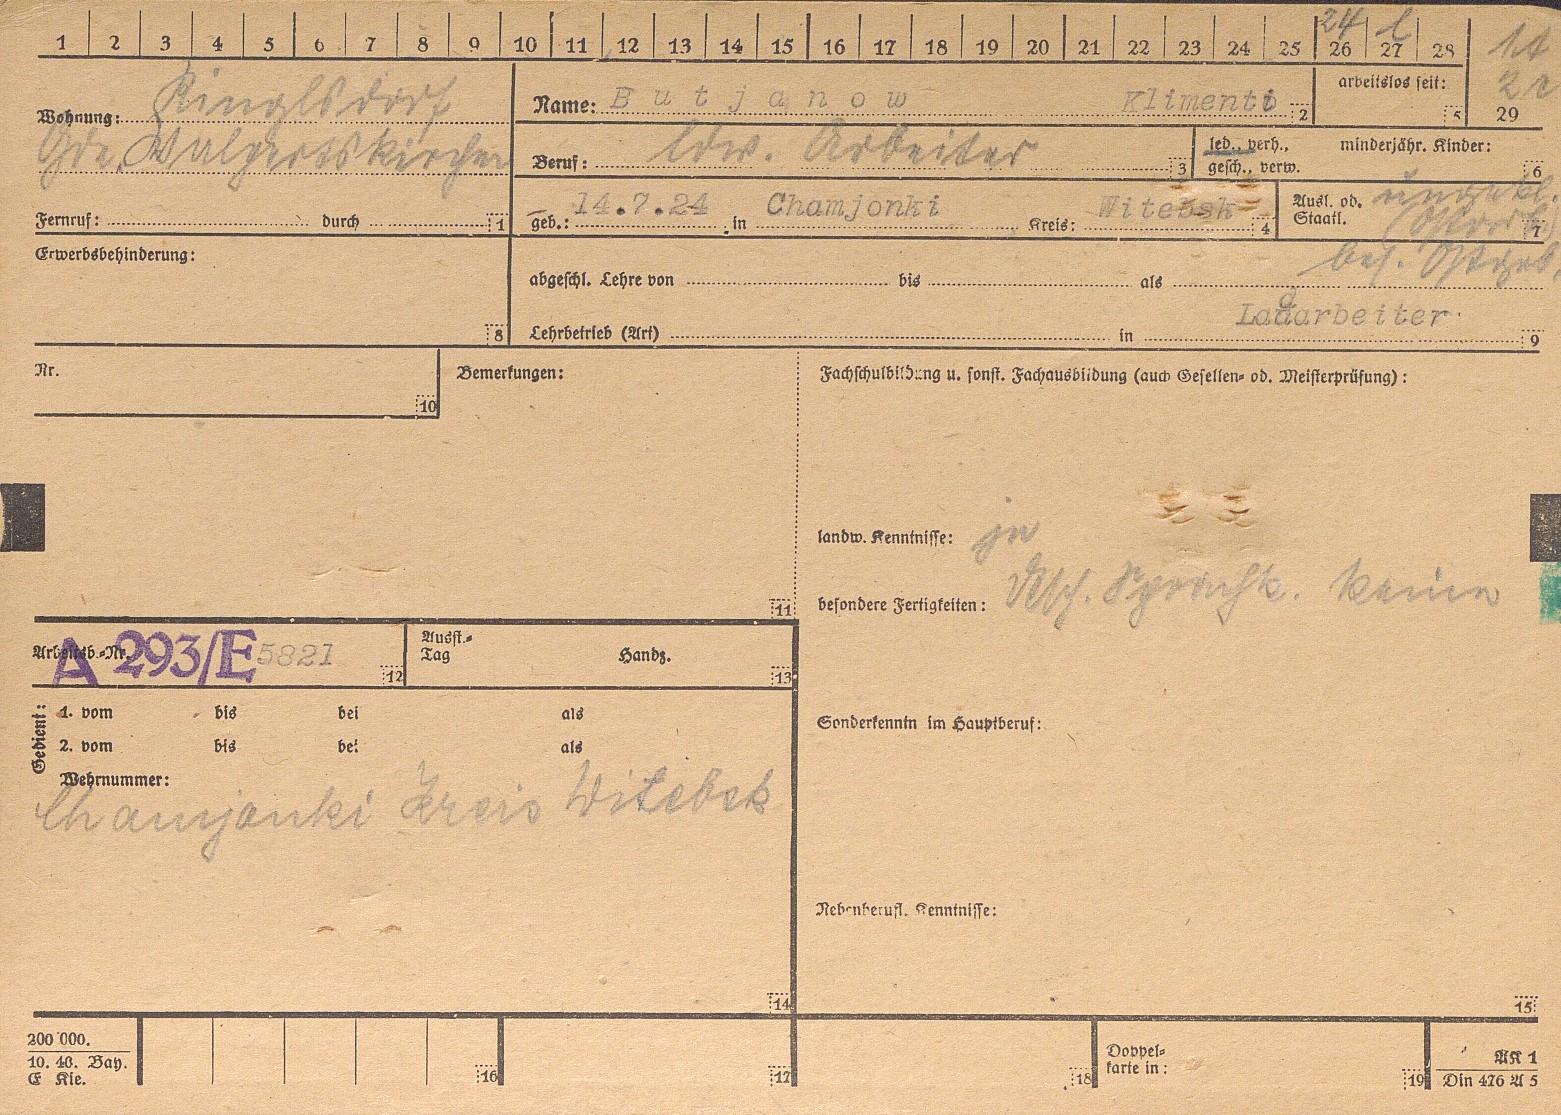 1 2 3 4 5 6 7 8 9 10 11 12 13 14 15 16 17 18 19 20 21 22 23 24 25 26 27 28
24
29
Wohnung: Ringlsdorf
Gde. Walpertskirchen
Fernruf: durch 1
Name: Butjanow Klimenti 2
arbeitslos seit: 5
Beruf: ldw. Arbeiter 3
led., verh.,
gesch., verw.
minderjähr. Kinder: 6
geb.: 14.7.24 in Chamjonki Kreis: Witebsk 4
Ausl. od. Staatl. ungekl. 7
bes. Ostgeb.
Erwerbsbehinderung: 8
abgeschl. Lehre von bis als
Ladarbeiter
Lehrbetrieb (Art) in 9
Nr. 10
Bemerkungen: 11
Fachschulbildung u. sonst. Fachausbildung (auch Gesellen- od. Meisterprüfung):
landw. Kenntnisse: ja
besondere Fertigkeiten: Dtsch. Sprachk. keine
Arbeitsb.-Nr. A 293/E 5821 12
Ausst.-Tag Handz. 13
Gedient:
1. vom bis bei als
2. vom bis bei als
Wehrnummer:
Chamjanki Kreis Witebsk
14
Sonderkenntn im Hauptberuf:
Nebenberufl. Kenntnisse:
15
200 000.
10. 40. Bay.
E Kie.
16 17 18
Doppel-
karte in: 19
AK 1
Din 476 A 5